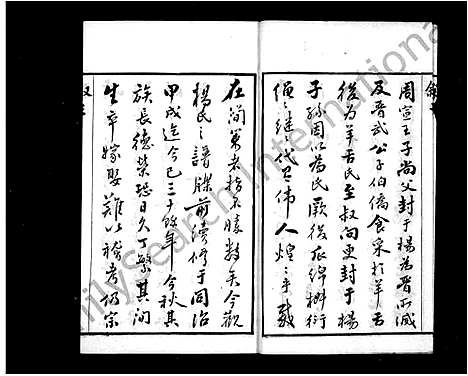 周宣王子尚父封于楊為晋所滅
及晋武公子伯僑食采於羊舌
後为羊舌氏至叔向更封于楊
子孫因以為氏厥後瓜綿椒衍
繩繩繼繼代且偉人煌煌乎載
在簡篇者指不勝數矣今觀
楊氏之譜牒前曾修于同治
甲戌迄今已三十餘年今秋其
族長德榮恐日久丁繁其間
生卒嫁娶難以稽考仍宗
FamilySearch International